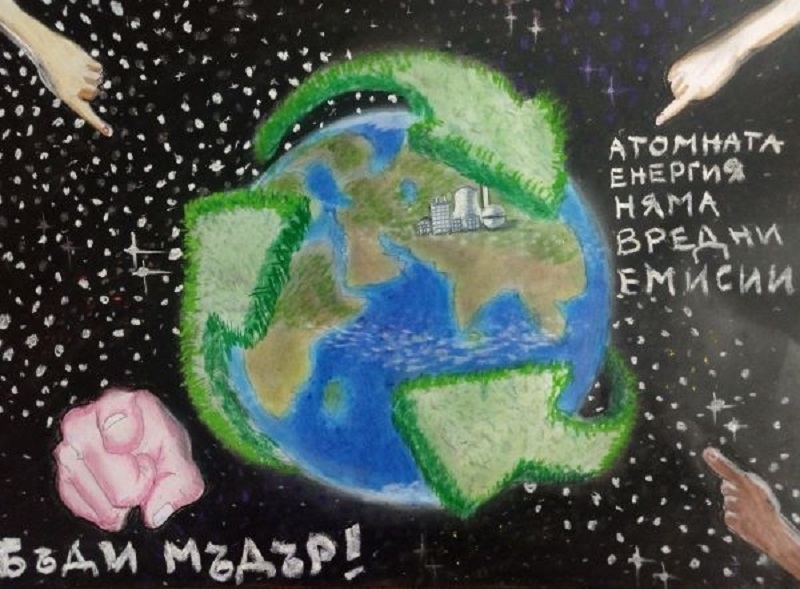 АТОМНАТА
ЕНЕРГИЯ
НЯМА
ВРЕДНИ
ЕМИСИИ
БЪДИ МЪДЪР!